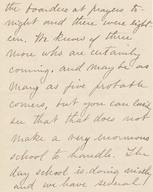 the boarders at prayers to-
night and there were eight-
een. We know of three
more who are certainly
coming, and may be as
many as five probable
comers, but you can look
see that that does not
make a very enormous
school to handle. The
day school is doing nicely
and we have several